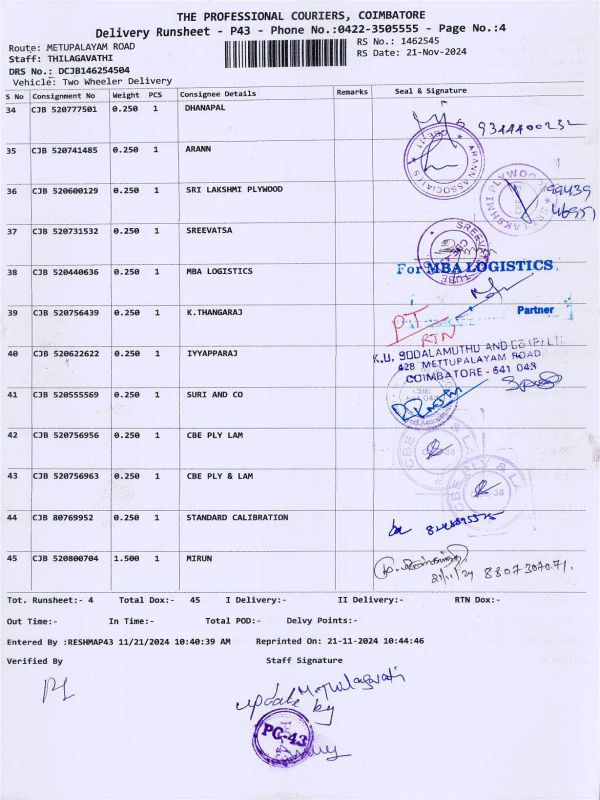 THE PROFESSIONAL COURIERS, COIMBATORE
Delivery Runsheet - P43 - Phone No.:0422-3505555 - Page No.:4
Route: METUPALAYAM ROAD
RS No.: 1462545
Staff: THILAGAVATHI
RS Date: 21-Nov-2024
DRS No.: DCJB146254504
Vehicle: Two Wheeler Delivery
S No Consignment No Weight PCS Consignee Details Remarks Seal & Signature
34 CJB 520777501 0.250 1 DHANAPAL
9344400232
35 CJB 520741485 0.250 1 ARANN
ARANN ASSOCIATES
36 CJB 520600129 0.250 1 SRI LAKSHMI PLYWOOD
SRI LAKSHMI PLYWOOD
99439
37 CJB 520731532 0.250 1 SREEVATSA
SREEVATSA TUBE
38 CJB 520440636 0.250 1 MBA LOGISTICS
For MBA LOGISTICS
39 CJB 520756439 0.250 1 K.THANGARAJ
Partner
PT
RTN
40 CJB 520622622 0.250 1 IYYAPPARAJ
K.U. SODALAMUTHU AND CO (P) LTD
428 METTUPALAYAM ROAD
COIMBATORE - 641 043
41 CJB 520555569 0.250 1 SURI AND CO
42 CJB 520756956 0.250 1 CBE PLY LAM
CBE PLY & LAM
43 CJB 520756963 0.250 1 CBE PLY & LAM
CBE PLY & LAM
44 CJB 80769952 0.250 1 STANDARD CALIBRATION
45 CJB 520800704 1.500 1 MIRUN
21/11/24 8807307071.
Tot. Runsheet:- 4 Total Dox:- 45 I Delivery:- II Delivery:- RTN Dox:-
Out Time:- In Time:- Total POD:- Delvy Points:-
Entered By :RESHMAP43 11/21/2024 10:40:39 AM Reprinted On: 21-11-2024 10:44:46
Verified By Staff Signature
M.Thilagavati
update by
PC-43